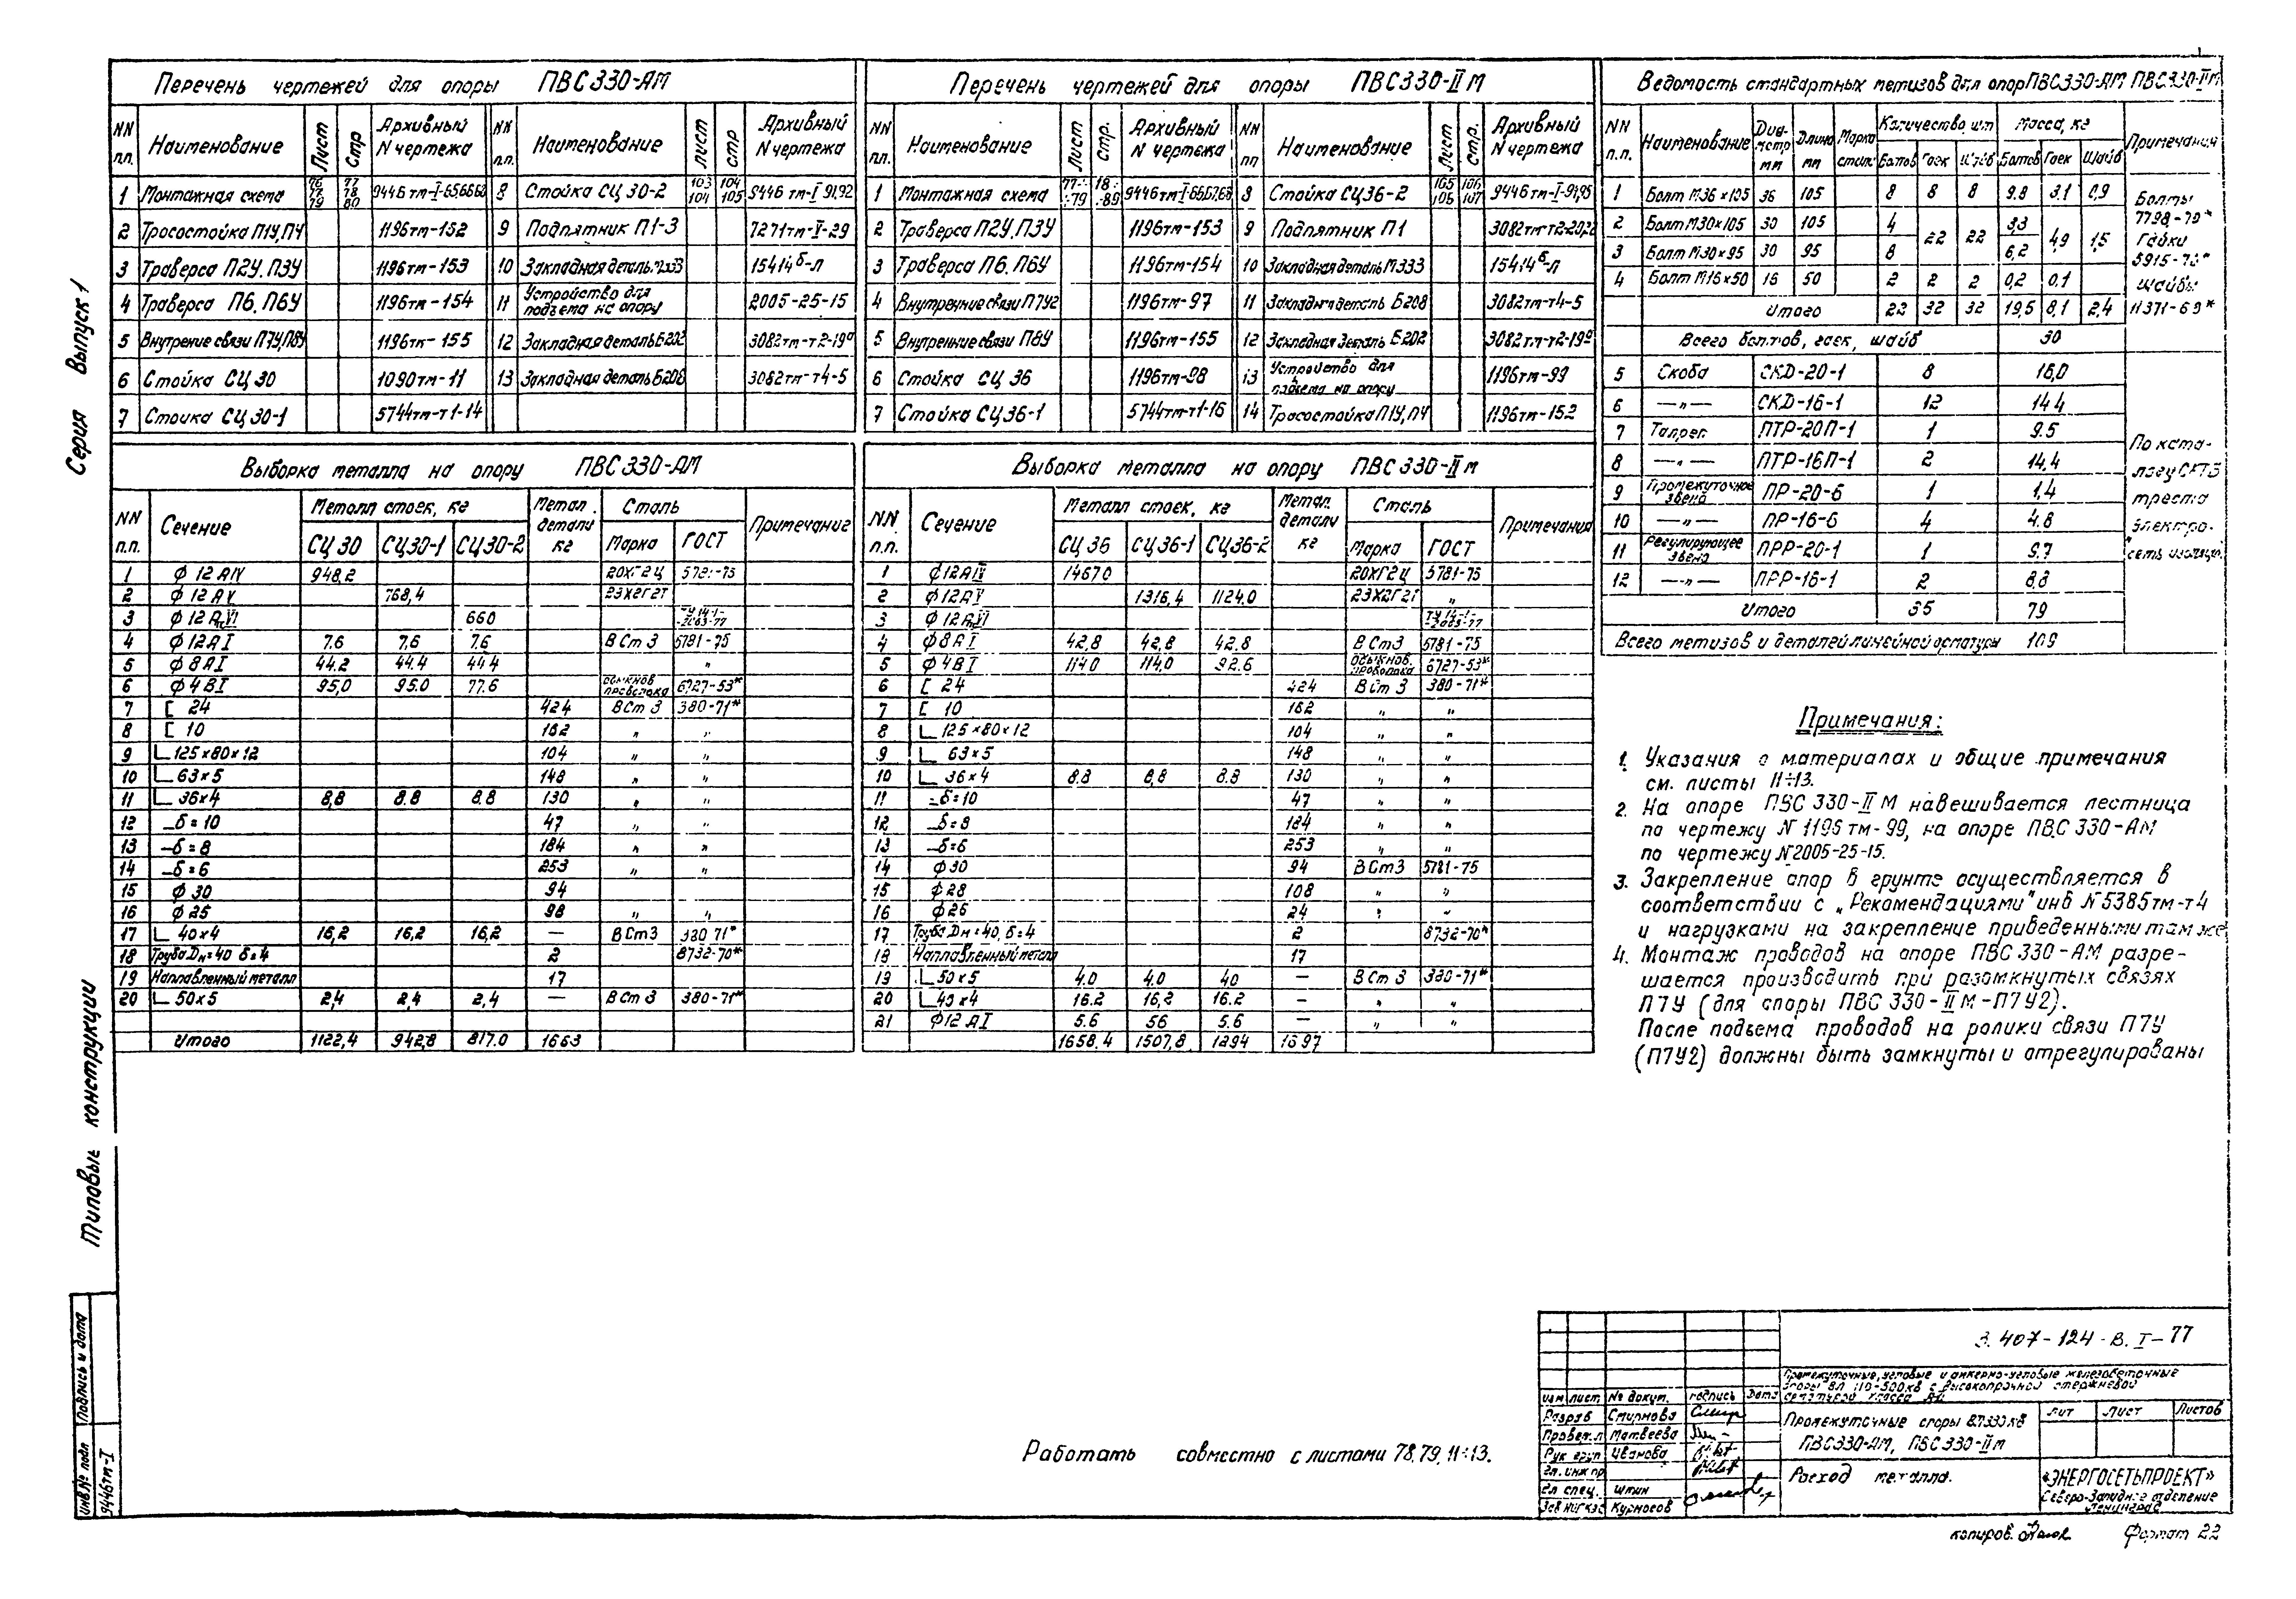 Серия Выпуск 1
Типовые конструкции
Подпись и дата
Инв.№ подл
9446тм-I
Перечень чертежей для опоры ПВС330-АМ
NN п.п. Наименование Лист Стр Архивный N чертежа NN п.п. Наименование Лист Стр Архивный N чертежа
1 Монтажная схема 79 77 78 80 8 Стойка СЦ 30-2 103 104 104 105 9446 тм-I 91,92
2 Тросостойка П1У,П4 1196тм-152 9 Подпятник П1-3 7271тм-II-29
3 Траверса П2У.П3У 1196тм-153 10 Закладная деталь М333 15414б-Л
4 Траверса П6.П6У 1196тм-154 11 Устройство для подъема на опору 2005-25-15
5 Внутрение связи П7У,П8У 1196тм-155 12 Закладная деталь Б202 3082тм-т2-19а
6 Стойка СЦ 30 1090тм-11 13 Закладная деталь Б208 3082тм-т4-5
7 Стойка СЦ 30-1 5744тм-т1-14
Перечень чертежей для опоры ПВС330-II М
NN п.п. Наименование Лист Стр. Архивный N чертежа NN пп Наименование Лист Стр. Архивный N чертежа
1 Монтажная схема 8 Стойка СЦ36-2 105 106 106 107 9446тм-I-91,95
2 Траверса П2У.П3У 1196тм-153 9 Подпятник П1
3 Траверса П6.П6У 1196тм-154 10 Закладная деталь М333 15414б-Л
4 Внутренние связи П7У2 1196тм-97 11 Закладная деталь Б208 3082тм-т4-5
5 Внутренние связи П8У 1196тм-155 12 Закладная деталь Б202 3082тм-т2-19а
6 Стойка СЦ 36 1196тм-98 13 Устройство для подъема на опору 1196тм-99
7 Стойка СЦ36-1 5744тм-т1-16 14 Тросостойка П1У,П4 1196тм-152
Ведомость стандартных метизов для опор ПВС330-АМ ПВС330-IIМ
NN п.п. Наименование Диаметр мм Длина мм Марка стали Количество шт Масса, кг Примечания
Болтов Гаек Шайб Болтов Гаек Шайб
1 Болт М36x105 36 105 8 8 8 9.8 3.1 0,9
2 Болт М30x105 30 105 4 22 22 3,3 4,9 1,5
3 Болт М30x95 30 95 8 6,2
4 Болт М16x50 16 50 2 2 2 0,2 0,1
Итого 22 32 32 19,5 8,1 2,4
Болты 7798-70* Гайки 5915-70* шайбы 11371-68*
Всего болтов, гаек, шайб 30
5 Скоба СКД-20-1 8 16,0
6 —„— СКД-16-1 12 14.4
7 Талреп ПТР-20П-1 1 9.5
8 —„— ПТР-16П-1 2 14,4
9 Промежуточное звено ПР-20-6 1 1,4
10 —„— ПР-16-6 4 4.8
11 Регулирующее звено ПРР-20-1 1 9.7
12 —„— ПРР-16-1 2 8,8
Итого 35 79
По каталогу СКТБ треста „Электросеть изоляция"
Всего метизов и деталей линейной арматуры 109
Выборка металла на опору ПВС330-АМ
NN п.п. Сечение Металл стоек, кг Метал. детали кг Сталь Примечание
СЦ30 СЦ30-1 СЦ30-2 Марка ГОСТ
1 ф 12АIV 948.2 20ХГ2Ц 5781-75
2 ф 12АV 768,4 23Х2Г2Т
3 ф 12АтVI 660
4 ф 12АI 7.6 7,6 7.6 ВСт3 5781-75
5 ф 8АI 44.2 44.4 44.4 „
6 ф 4ВI 95,0 95.0 77.6 обыкнов проволока 6727-53*
7 [ 24 424 ВСт 3 380-71*
8 [ 10 162 „ „
9 ∟125x80x12 104 „ „
10 ∟63x5 148 „ „
11 ∟36x4 8,8 8.8 8.8 130 „ „
12 –δ=10 47 „ „
13 –δ=8 184 „ „
14 –δ=6 253 „ „
15 ф 30 94
16 ф 25 98 „ „
17 ∟40x4 16,2 16,2 16,2 — ВСт3 380 71*
18 Труба Dн=40 δ=4 2 8732-70*
19 Наплавленный металл 17
20 ∟50x5 2,4 2,4 2,4 — ВСт 3 380-71*
Итого 1122,4 942,8 817.0 1663
Выборка металла на опору ПВС330-IIм
NN п.п. Сечение Металл стоек, кг Метал. детали кг Сталь Примечания
СЦ36 СЦ36-1 СЦ36-2 Марка ГОСТ
1 ф12АIV 1467.0 20ХГ2Ц 5781-75
2 ф12АV 1316,4 1124.0 23Х2Г2Т „
3 ф12АтVI
4 ф8АI 42,8 42,8 42.8 ВСт3 5781-75
5 ф4ВI 114.0 114.0 92.6 обыкнов. проволока 6727-53*
6 [ 24 424 ВСт 3 380-71*
7 [ 10 162 „ „
8 ∟125x80x12 104 „ „
9 ∟63x5 148 „ „
10 ∟36x4 8.8 8,8 8.8 130 „ „
11 –δ=10 47 „ „
12 –δ=8 184 „ „
13 –δ=6 253 „ „
14 ф30 94 ВСт3 5781-75
15 ф28 108 „ „
16 ф25 24 „ „
17 Труба Dн=40, δ=4 2 8732-70*
18 Наплавленный металл 17
19 ∟50x5 4.0 4.0 4.0 — ВСт3 380-71*
20 ∟40x4 16.2 16,2 16.2 — „ „
21 ф12АI 5.6 5.6 5.6 — „ „
1658.4 1507,8 1294 1697
Примечания:
1. Указания о материалах и общие примечания
см. листы 11÷13.
2. На опоре ПВС 330-IIМ навешивается лестница
по чертежу N 1196 тм-99, на опоре ПВС 330-АМ
по чертежу N2005-25-15.
3. Закрепление опор в грунте осуществляется в
соответствии с „Рекомендациями" инв N5385тм-т4
и нагрузками на закрепление приведенными там же
4. Монтаж проводов на опоре ПВС 330-АМ разре-
шается производить при разомкнутых связях
П7У (для опоры ПВС 330-IIМ-П7У2).
После подъема проводов на ролики связи П7У
(П7У2) должны быть замкнуты и отрегулированы
Работать совместно с листами 78,79, 11÷13.
3.407-124-В.I-77
Промежуточные, угловые и анкерно-угловые железобетонные
опоры ВЛ 110-500кв с высокопрочной стержневой
арматурой класса
Изм Лист № докум. подпись Дата
Разраб Смирнова
Проверил Матвеева
Рук груп Иванова
Гл.инж пр
Гл спец. Штин
Курносов
Промежуточные опоры ВЛ330кВ
ПВС330-АМ, ПВС330-IIм
Лит Лист Листов
Расход металла.
«ЭНЕРГОСЕТЬПРОЕКТ»
Северо-Западное отделение
Ленинград
копиров.
Формат 22